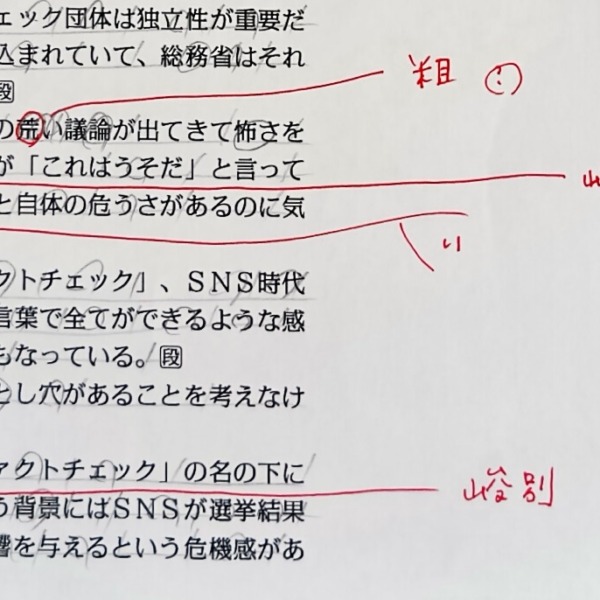 ェック団体は独立性が重要だ
込まれていて、総務省はそれ
段
粗 ?
の荒い議論が出てきて怖さを
が「これはうそだ」と言って
と自体の危うさがあるのに気
い
クトチェック」、ＳＮＳ時代
言葉で全てができるような感
もなっている。段
とし穴があることを考えなけ
ァクトチェック」の名の下に
峻別
う背景にはＳＮＳが選挙結果
響を与えるという危機感があ